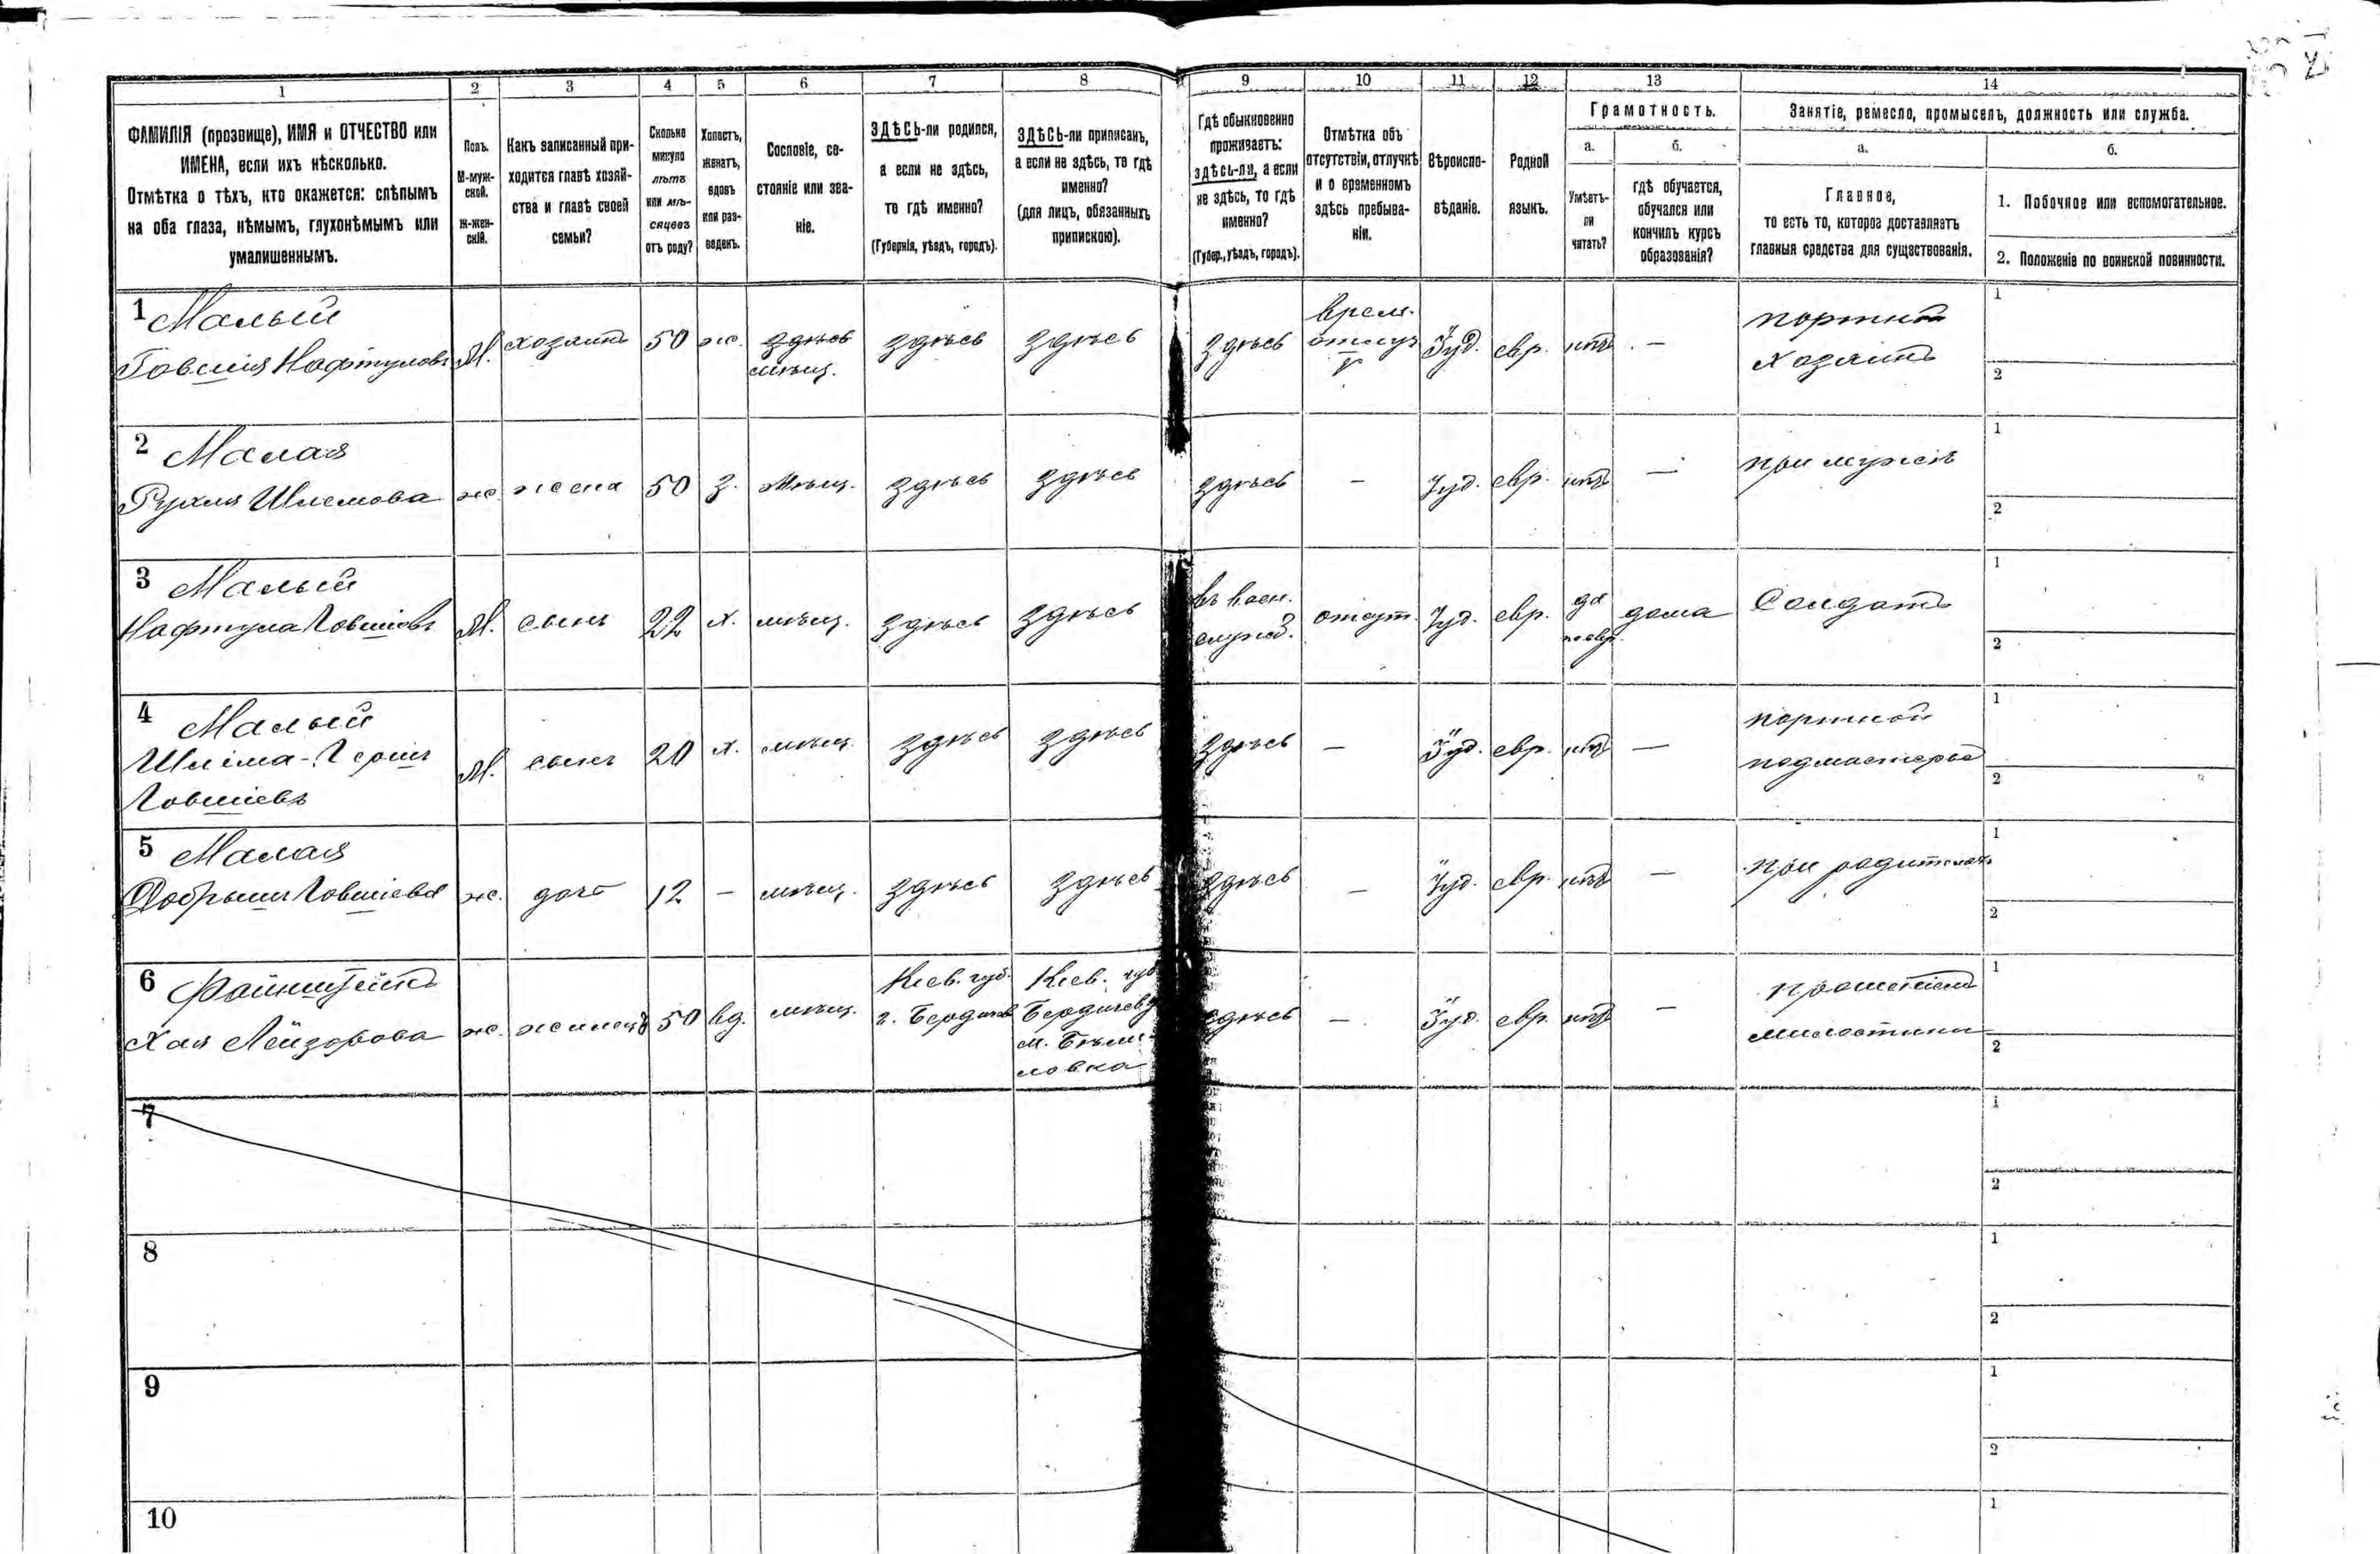 1 2 3 4 5 6 7 8 9 10 11 12 13 14
ФАМИЛІЯ (прозвище), ИМЯ и ОТЧЕСТВО или
ИМЕНА, если ихъ нѣсколько.
Отмѣтка о тѣхъ, кто окажется: слѣпымъ
на оба глаза, нѣмымъ, глухонѣмымъ или
умалишеннымъ.
Полъ.
М-муж-
ской.
Ж-жен-
скій.
Какъ записанный при-
ходится главѣ хозяй-
ства и главѣ своей
семьи?
Сколько
минуло
лѣтъ
или мѣ-
сяцевъ
отъ роду?
Холостъ,
женатъ,
вдовъ
или раз-
веденъ.
Сословіе, со-
стояніе или зва-
ніе.
ЗДѢСЬ-ли родился,
а если не здѣсь,
то гдѣ именно?
(Губернія, уѣздъ, городъ).
ЗДѢСЬ-ли приписанъ,
а если не здѣсь, то гдѣ
именно?
(для лицъ, обязанныхъ
припискою).
Гдѣ обыкновенно
проживаетъ:
здѣсь-ли, а если
не здѣсь, то гдѣ
именно?
(Губер., уѣздъ, городъ).
Отмѣтка объ
отсутствіи, отлучкѣ
и о временномъ
здѣсь пребыва-
ніи.
Вѣроиспо-
вѣданіе.
Родной
языкъ.
Грамотность.
а.
Умѣетъ-
ли
читать?
б.
гдѣ обучается,
обучался или
кончилъ курсъ
образованія?
Занятіе, ремесло, промыселъ, должность или служба.
а.
Главное,
то есть то, которое доставляетъ
главныя средства для существованія.
б.
1. Побочное или вспомогательное.
2. Положеніе по воинской повинности.
1 Малый
Говшія Нафтулов
М. хозяинъ 50 ж. здѣсь
мѣщ.
здѣсь здѣсь здѣсь
врем.
отлуч
Іуд. евр. нѣтъ —
портной
хозяинъ
1
2
2 Малая
Рухля Шлемова ж. жена 50 з. мѣщ. здѣсь здѣсь здѣсь — Іуд. евр. нѣтъ — при мужѣ
1
2
3 Малый
Нафтула Говшіевъ М. сынъ 22 х. мѣщ. здѣсь здѣсь
въ воен.
служб.
отсут. Іуд. евр. да
по евр.
дома Солдатъ
1
2
4 Малый
Шлема-Герш
Говшіевъ
М. сынъ 20 х. мѣщ. здѣсь здѣсь здѣсь — Іуд. евр. нѣтъ —
портной
подмастерье
1
2
5 Малая
Добрыш Говшіева ж. дочь 12 — мѣщ. здѣсь здѣсь здѣсь — Іуд. евр. нѣтъ — при родителях
1
2
6 Файнштейнъ
Хая Лейзорова ж. жилецъ 50 вд. мѣщ.
Кіев. губ.
г. Бердичев
Кіев. губ.
Бердичев. у
м. Бѣли-
ловка
здѣсь — Іуд. евр. нѣтъ —
прошеніемъ
милостыни
1
2
7
1
2
8
1
2
9
1
2
10
1